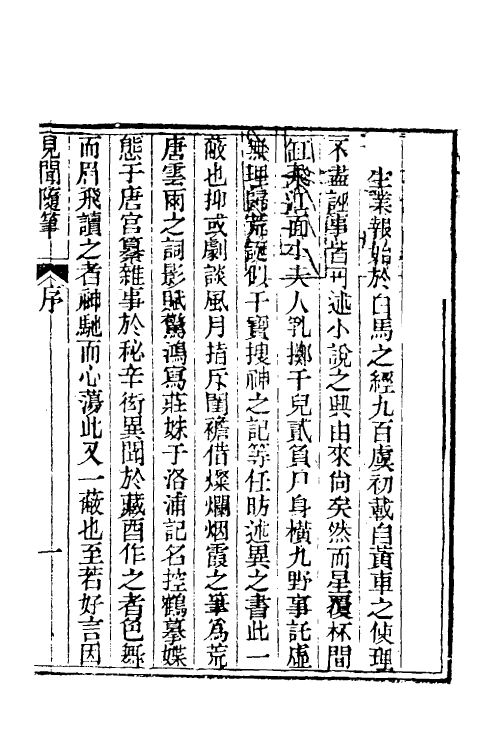 生業報始於白馬之經九百虞初載自黃車之使理
不盡誣事皆可述小說之興由來尚矣然而星覆杯間
缸飛瓦面小夫人乳擲千兒貳負尸身橫九野事託虛
無理歸荒誕似干寶搜神之記等任昉述異之書此一
蔽也抑或劇談風月指斥閨襜借燦爛烟霞之筆為荒
唐雲雨之詞影賦驚鴻寫莊姝于洛浦記名控鶴摹媟
態于唐宮纂雜事於秘辛衒異聞於藏酉作之者色舞
而眉飛讀之者神馳而心蕩此又一蔽也至若好言因
見聞隨筆
序
一